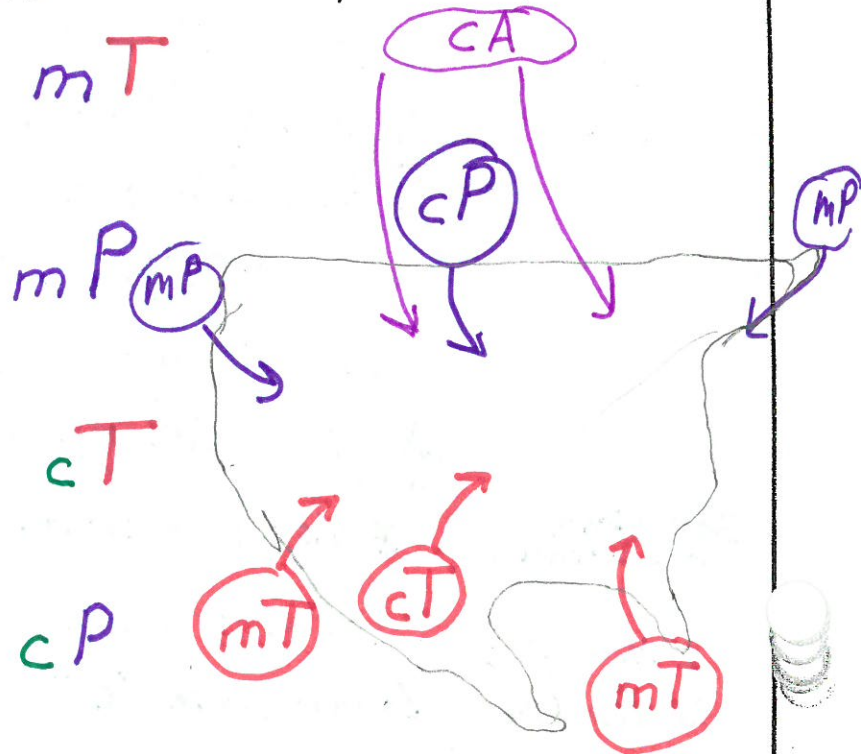 mT
cA
cP
mP
mP
mP
cT
mT
cT
cP
mT